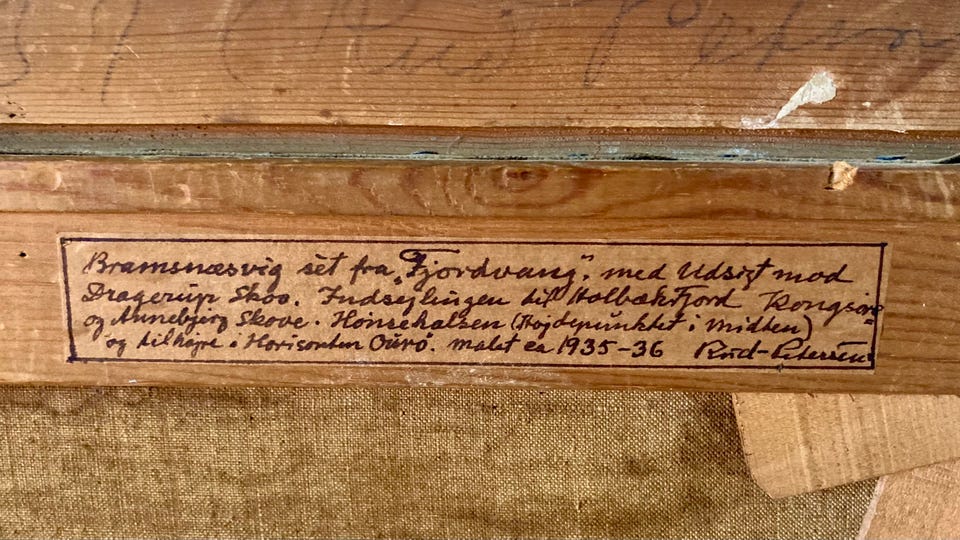 Rud Petersen
Bramsnæsvig sèt fra „Fjordvang“. med Udsigt mod
Dragerup Skov. Indsejlingen til Holbæk Fjord Kongsøre=
og Annebjerg Skove. Hønsehalsen (Højdepunktet i midten)
og tilhøjre i Horisonten Ourø. malet ca 1935-36 Rud-Petersen